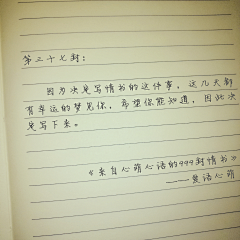 第三十七封：
因为决定写情书的这件事，这几天都
有幸运的梦见你，希望你能知道，因此决
定写下来。
《来自心萌心语的999封情书》
——爱语心萌